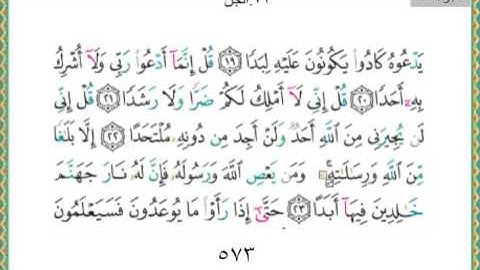 ٧٢ الجن
يَدْعُوهُ كَادُوا۟ يَكُونُونَ عَلَيْهِ لِبَدًا ۝١٩ قُلْ إِنَّمَآ أَدْعُوا۟ رَبِّى وَلَآ أُشْرِكُ
بِهِۦٓ أَحَدًا ۝٢٠ قُلْ إِنِّى لَآ أَمْلِكُ لَكُمْ ضَرًّا وَلَا رَشَدًا ۝٢١ قُلْ إِنِّى
لَن يُجِيرَنِى مِنَ ٱللَّهِ أَحَدٌ وَلَنْ أَجِدَ مِن دُونِهِۦ مُلْتَحَدًا ۝٢٢ إِلَّا بَلَٰغًا
مِّنَ ٱللَّهِ وَرِسَٰلَٰتِهِۦ ۚ وَمَن يَعْصِ ٱللَّهَ وَرَسُولَهُۥ فَإِنَّ لَهُۥ نَارَ جَهَنَّمَ
خَٰلِدِينَ فِيهَآ أَبَدًا ۝٢٣ حَتَّىٰٓ إِذَا رَأَوْا۟ مَا يُوعَدُونَ فَسَيَعْلَمُونَ
٥٧٣